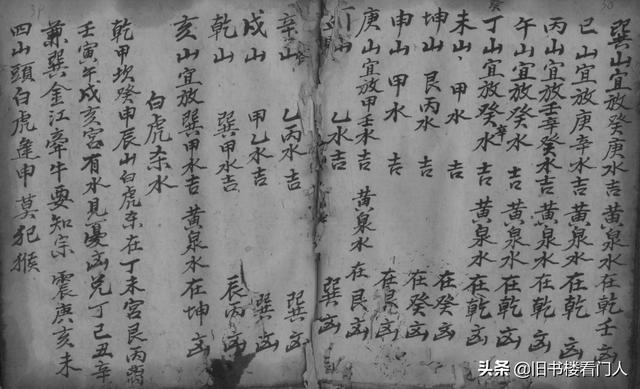 巽山宜放癸庚水吉黄泉水在乾壬凶
巳山宜放庚辛水吉黄泉水在乾凶
丙山宜放壬辛癸水吉黄泉水在乾凶
午山宜放癸水吉黄泉水在乾凶
丁山宜放癸辛水吉黄泉水在乾凶
未山甲水吉在癸凶
坤山艮丙水吉在癸凶
申山甲水吉在艮凶
庚山宜放甲壬水吉黄泉水在艮凶
山乙水吉巽凶
辛山乙丙水吉巽凶
戍山甲乙水吉巽凶
乾山巽甲水吉辰丙凶
亥山宜放巽甲水吉黄泉水在坤凶
白虎杀水
乾甲坎癸申辰山白虎杀在丁未宫艮丙
壬寅午戍亥宫有水見憂凶兑丁己丑辛
兼巽金江牽牛要知宗震庚亥未
四山頭白虎逢申莫犯猴
头条@旧书楼看门人